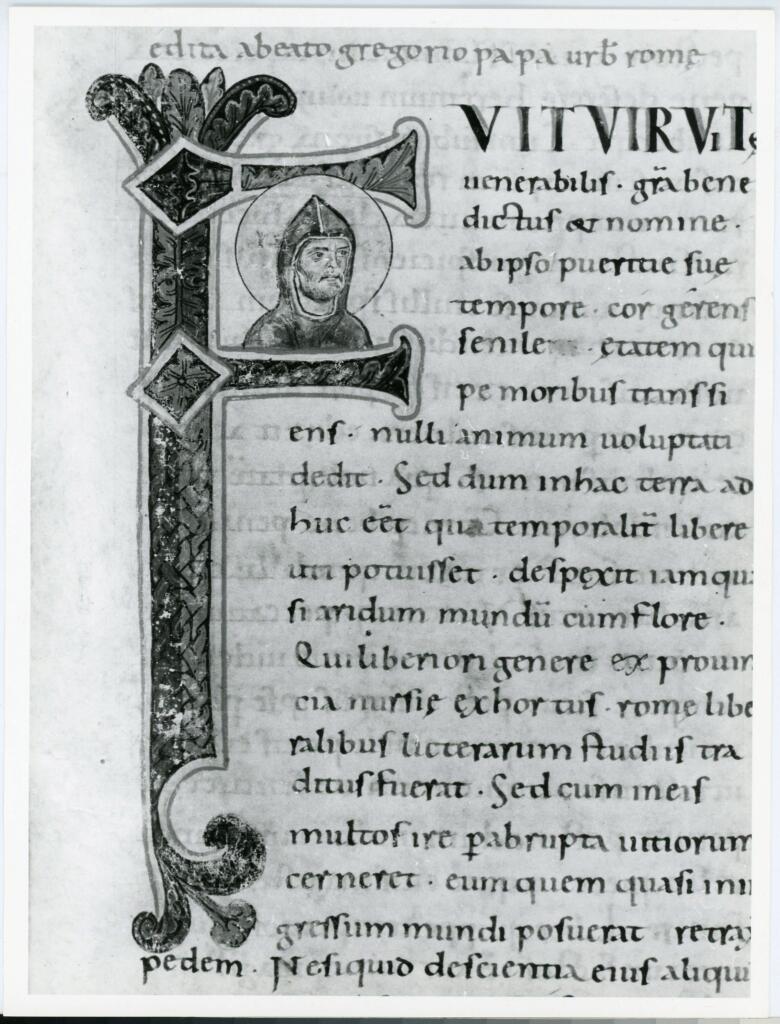 edita abeato gregorio papa urb̄ romę
FVIT VIR VITę
uenerabilis · gr̄a bene
dictus et nomine ·
abipso pueritie suę
tempore · cor gerens
senile · etatem qui
pe moribus transsi
ens · nulli animum uoluptati
dedit · Sed dum inhac terra ad
huc eēt qua temporalit̄ libere
uti potuisset · despęxit iam qua
si aridum mundū cum flore ·
Qui liberiori genere ex prouin
cia nursię ęxhortus · romę libe
ralibus licterarum studiis tra
ditus fuerat · Sed cum ineis
multos ire p̱abrupta uitiorum
cerneret · eum quem quasi inin
gressum mundi posuerat · retrax
pedem · Nesiquid descientia eius aliqui